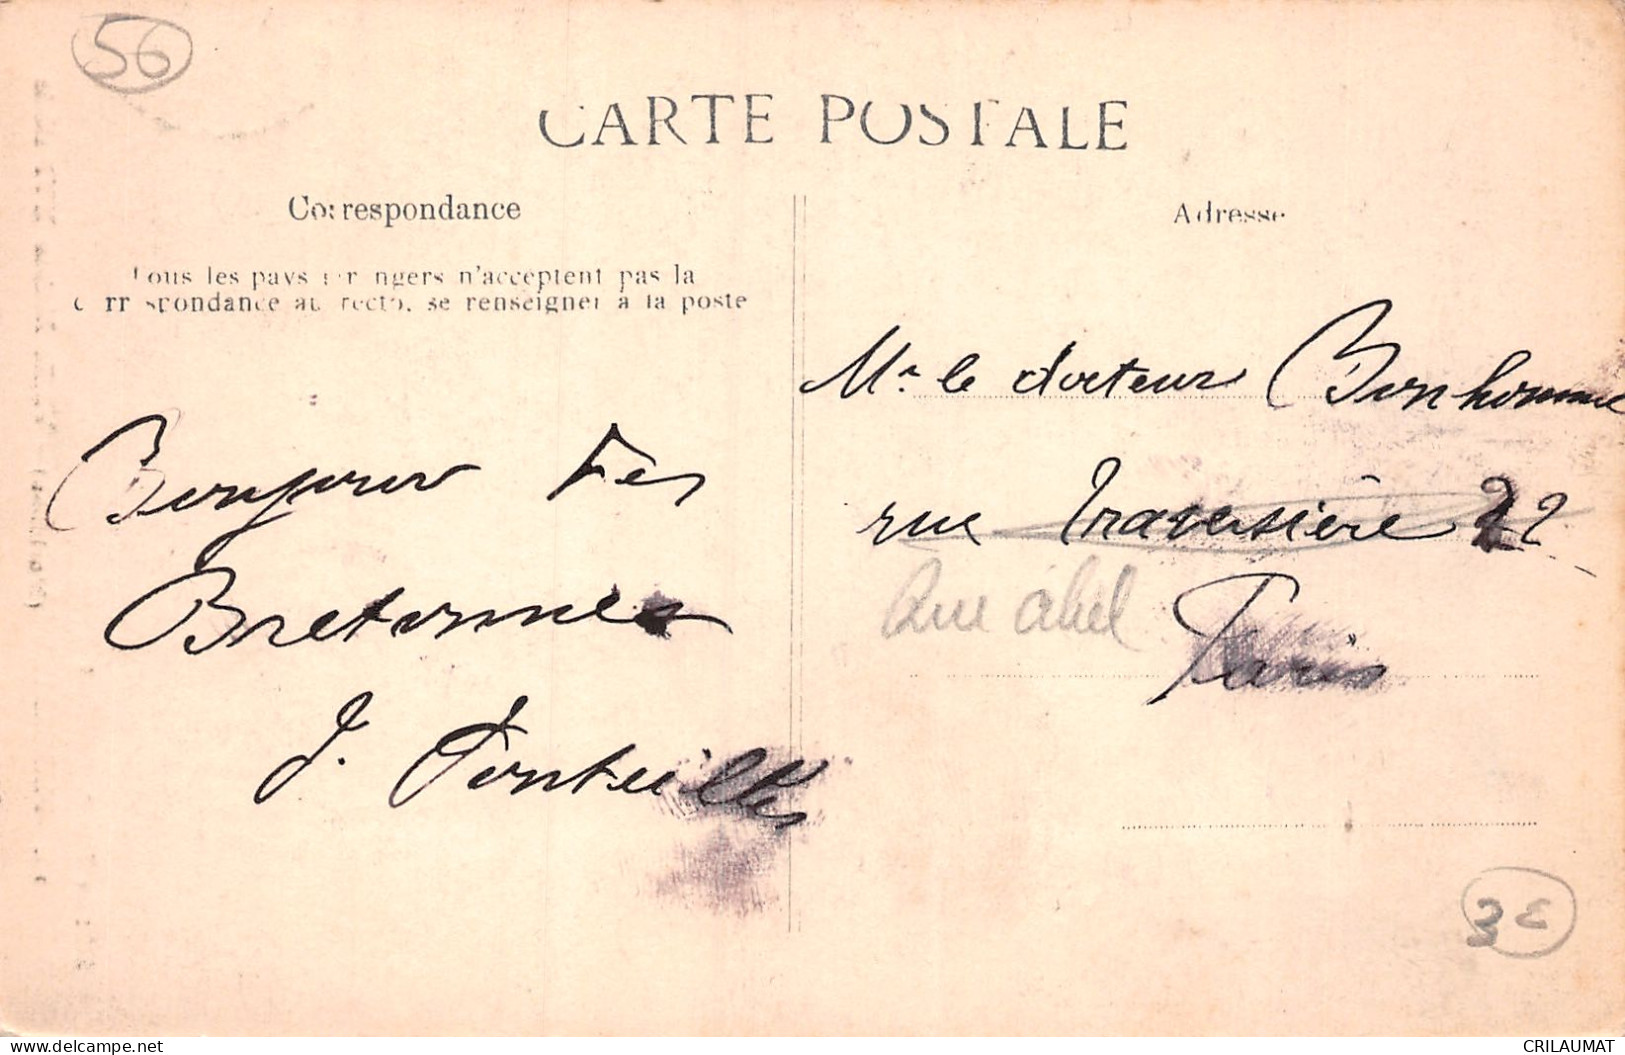 56
CARTE POSTALE
Correspondance
Tous les pays étrangers n'acceptent pas la
correspondance au recto, se renseigner à la poste
Bonjour des
Bretonnes
J. Ponteilles
Adresse
Mr le docteur Bonhomme
rue Traversière 22
Rue Abel
Paris
3€
delcampe.net
CRILAUMAT